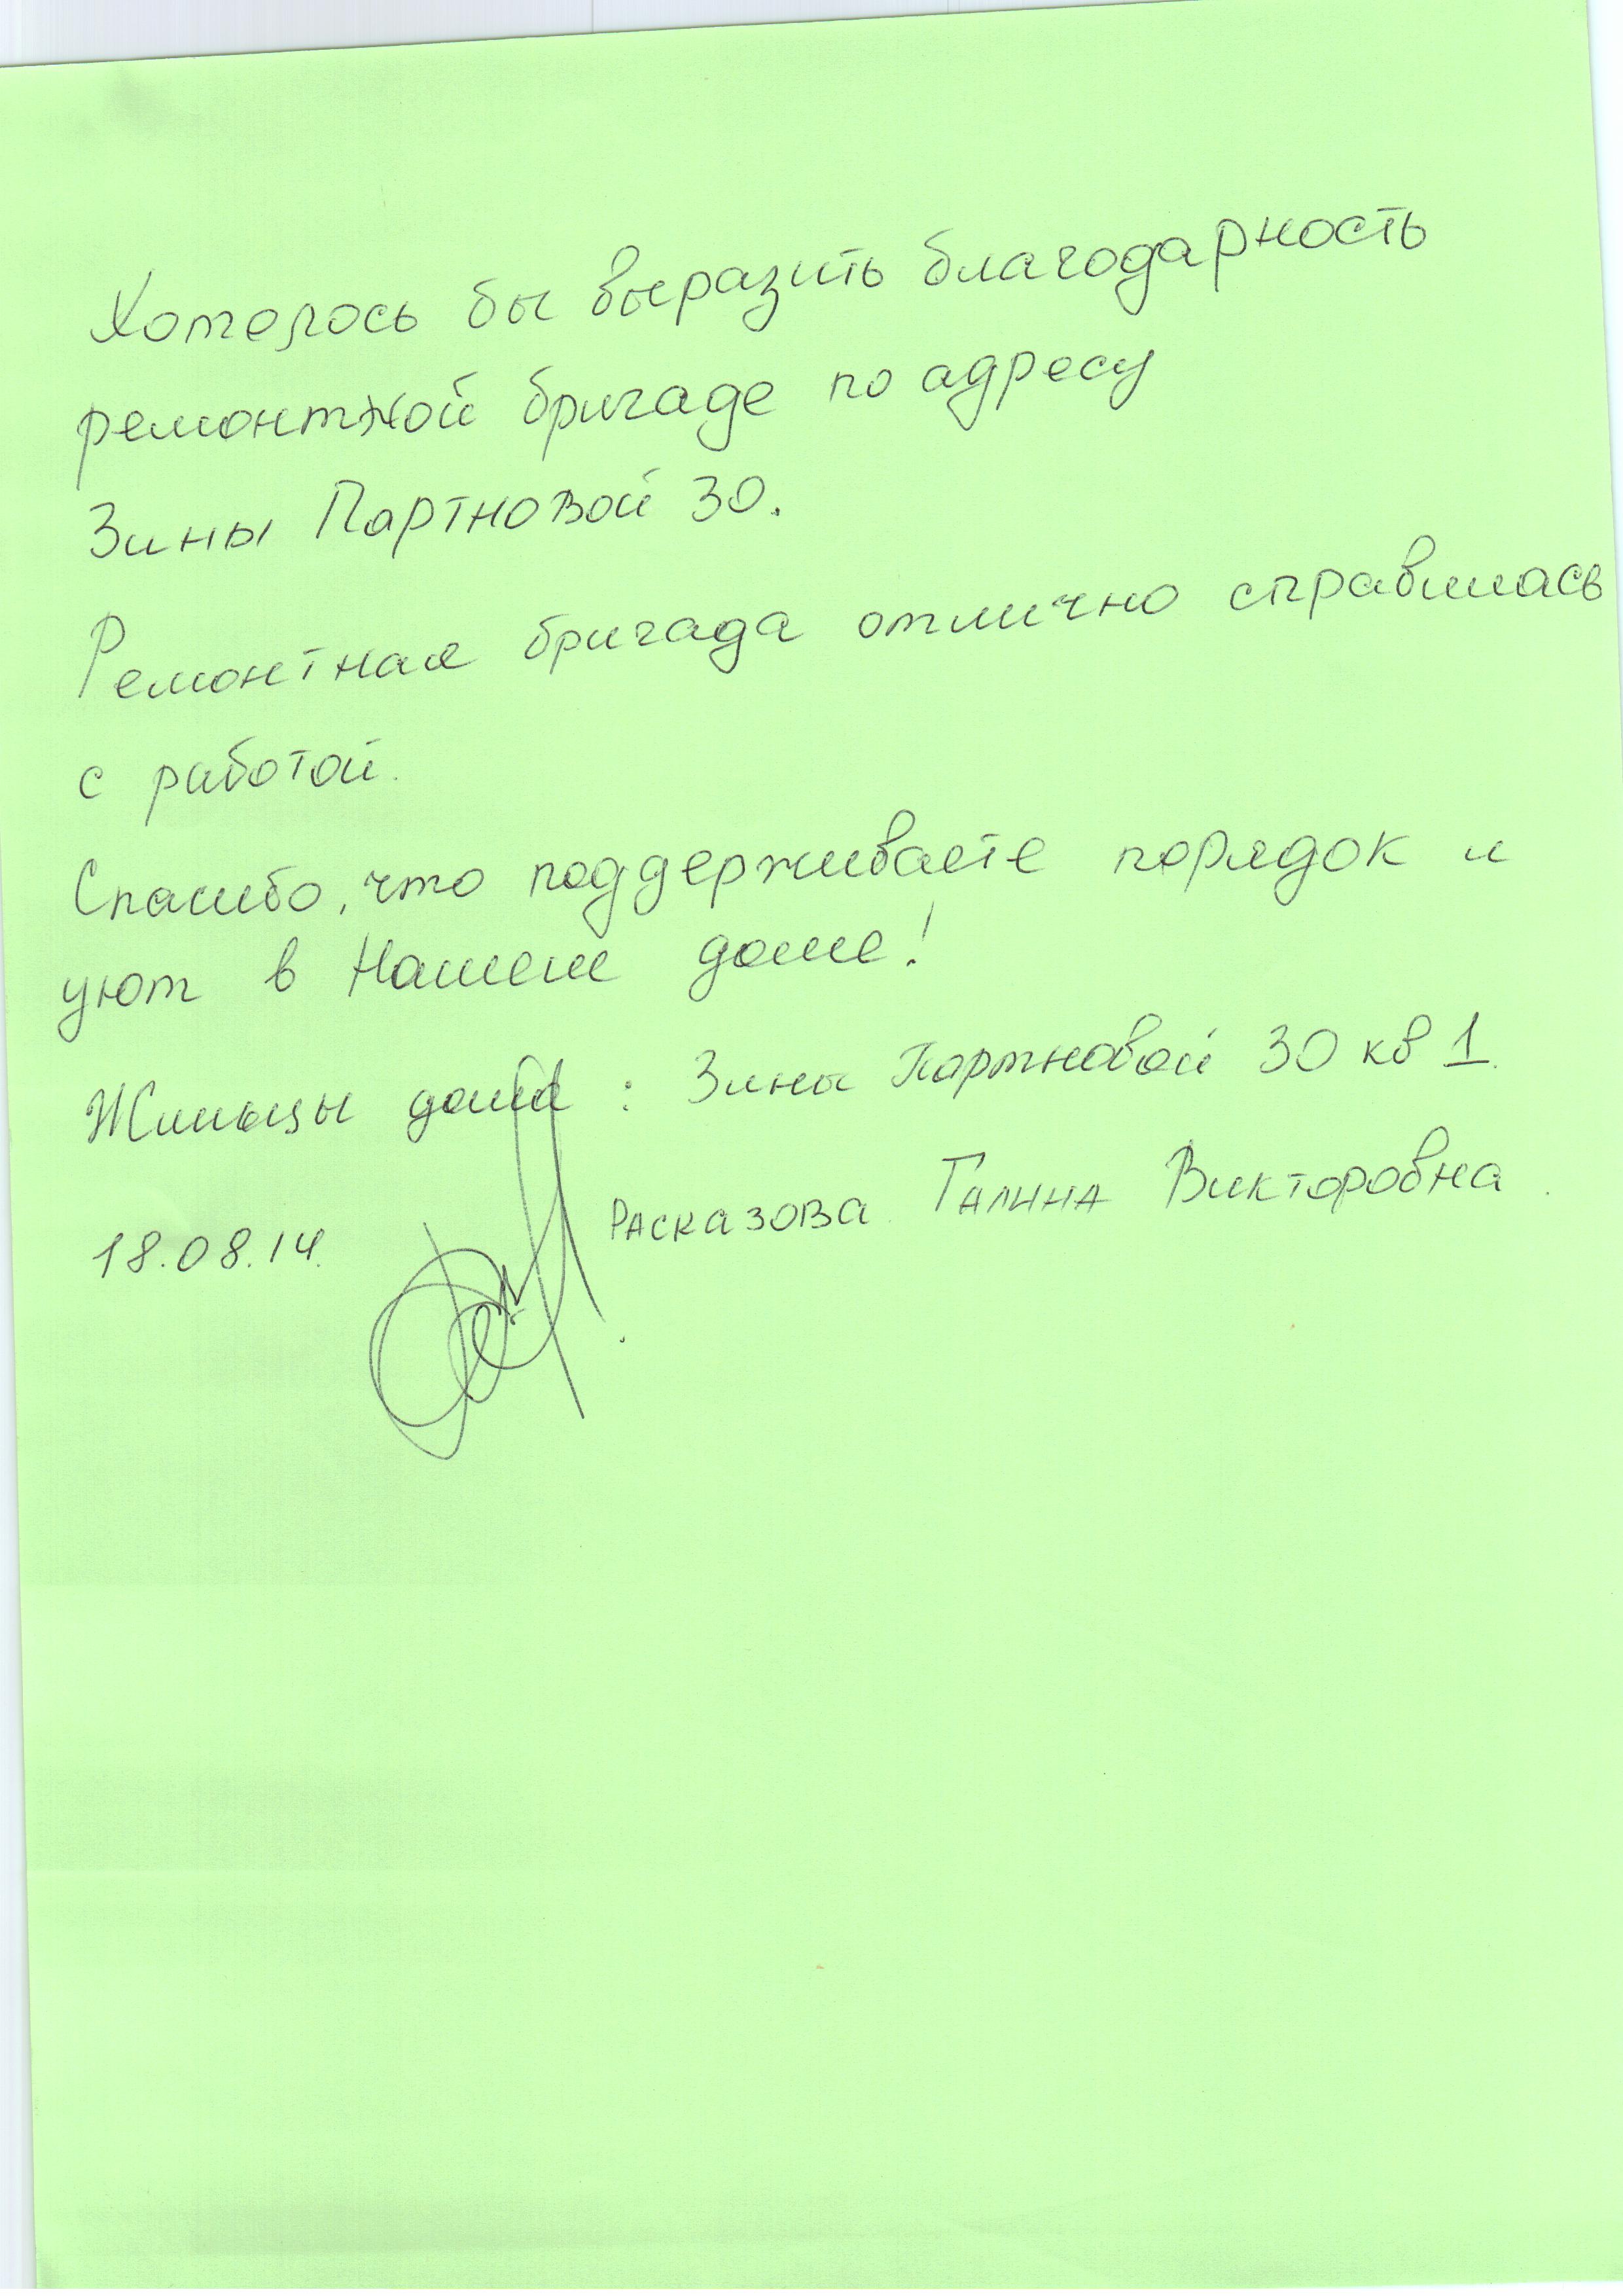 Хотелось бы выразить благодарность
ремонтной бригаде по адресу
Зины Партновой 30.
Ремонтная бригада отлично справилась
с работой.
Спасибо, что поддерживаете порядок и
уют в Нашем доме!
Жильцы дома : Зины Партновой 30 кв 1.
18.08.14. Расказова Галина Викторовна.